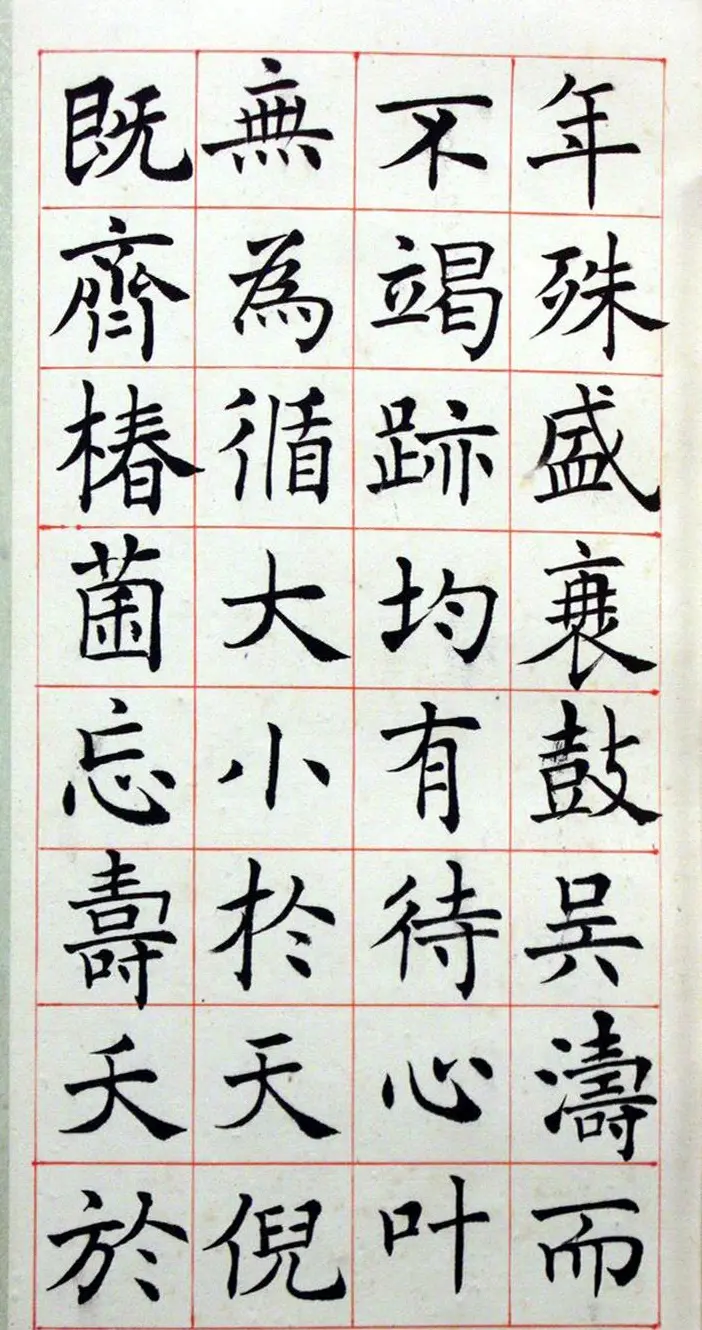 年殊盛衰鼓吴濤而
不竭跡均有待心叶
無為循大小於天倪
既齊椿菌忘壽夭於